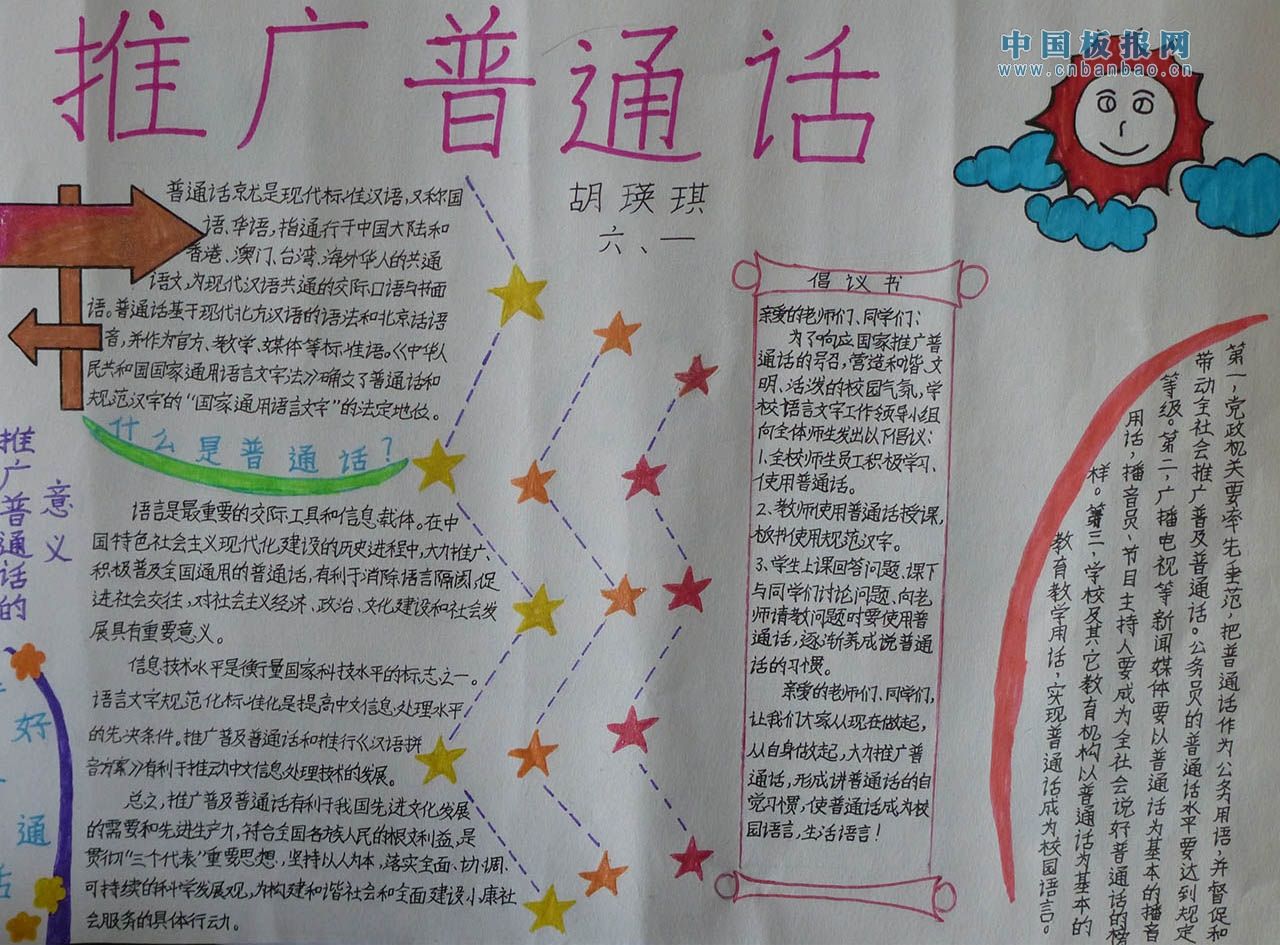 推广普通话
中国板报网
www.cnbanbao.cn
胡瑛琪
六、一
普通话就是现代标准汉语,又称国
语、华语,指通行于中国大陆和
香港、澳门、台湾、海外华人的共通
语文,为现代汉语共通的交际口语与书面
语。普通话基于现代北方汉语的语法和北京话语
音,并作为官方、教学、媒体等标准语。《中华人
民共和国国家通用语言文字法》确立了普通话和
规范汉字的“国家通用语言文字”的法定地位。
什么是普通话?
推广普通话的
意义
语言是最重要的交际工具和信息载体。在中
国特色社会主义现代化建设的历史进程中,大力推广、
积极普及全国通用的普通话,有利于消除语言隔阂,促
进社会交往,对社会主义经济、政治、文化建设和社会发
展具有重要意义。
信息技术水平是衡量国家科技水平的标志之一。
语言文字规范化标准化是提高中文信息处理水平
的先决条件。推广普及普通话和推行《汉语拼
音方案》有利于推动中文信息处理技术的发展。
总之,推广普及普通话有利于我国先进文化发展
的需要和先进生产力,符合全国各方族人民的根本利益,是
贯彻“三个代表”重要思想,坚持以人为本,落实全面、协调、
可持续的科学发展观,为构建和谐社会和全面建设小康社
会服务的具体行动。
好
通
话
倡议书
亲爱的老师们、同学们:
为了响应国家推广普
通话的号召,营造和谐、文
明、活泼的校园气氛,学
校语言文字工作领导小组
向全体师生发出以下倡议:
1、全校师生员工积极学习、
使用普通话。
2、教师使用普通话授课,
板书使用规范汉字。
3、学生上课回答问题、课下
与同学们讨论问题、向老
师请教问题时要使用普
通话,逐渐养成说普通
话的习惯。
亲爱的老师们、同学们,
让我们大家从现在做起,
从自身做起,大力推广普
通话,形成讲普通话的自
觉习惯,使普通话成为校
园语言,生活语言!
第一,党政机关要率先垂范,把普通话作为公务用语,并督促和
带动全社会推广普及普通话。公务员的普通话水平要达到规定
等级。第二,广播电视等新闻媒体要以普通话为基本的播音
用话,播音员、节目主持人要成为全社会说好普通话的榜
样。第三,学校及其它教育机构以普通话为基本的
教育教学用话,实现普通话成为校园语言。